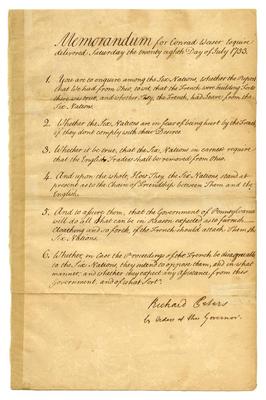 Memorandum for Conrad Weser Esquire
delivered Saturday the twenty eighth Day of July 1753.
1. You are to enquire among the Six Nations, whether the Report
that We had from Ohio, to wit, that the French were building Forts
there was true, and whether They, the French, had Leave from the
Six Nations.
2. Whether the Six Nations are in fear of being hurt by the French
if they dont comply with their Desires.
3. Whether it be true, that the Six Nations in earnest require
that the English Traders shall be removed from Ohio.
4. And upon the whole, How They the Six Nations, stand at
present as to the Chain of Friendship between Them and the
English.
5. And to assure them, that the Government of Pennsylvania
will do all that can be in Reason expected as to furnish
Cloathing and so forth, if the French should attack Them the
Six Nations.
6. Whether, in Case the Proceedings of the French be disagreeable
to the Six Nations, they intend to oppose them, and in what
manner, and whether they expect any Assistance from this
Government, and of what Sort.
Richard Peters
by Order of the Governor.